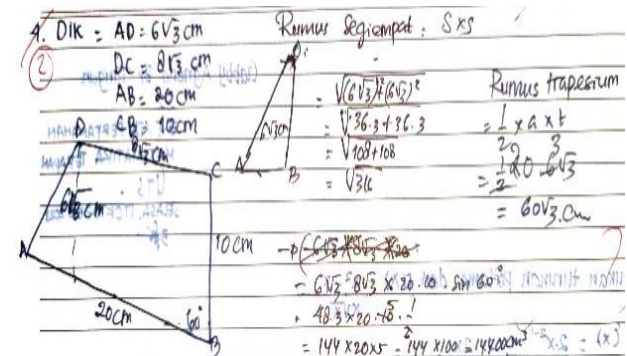 4. DIK = AD = 6√3 cm
DC = 8√3 cm
AB = 20 cm
CB = 10 cm
2
D
8√3 cm
C
6√3 cm
A
10 cm
20 cm
60°
B
Rumus Segiempat : S x S
6√3 cm
A
B
= √(6√3)²+(6√3)²
= √36.3+36.3
= √108+108
= √316
Rumus trapesium
= 1/2 x a x t
= 1/2 20 6√3
= 60√3 . Cm
= 6√3 . 8√3 x 20 . 10 sin 60°
= 144 x 20 x 5 = 144 x 100 = 14400 cm²